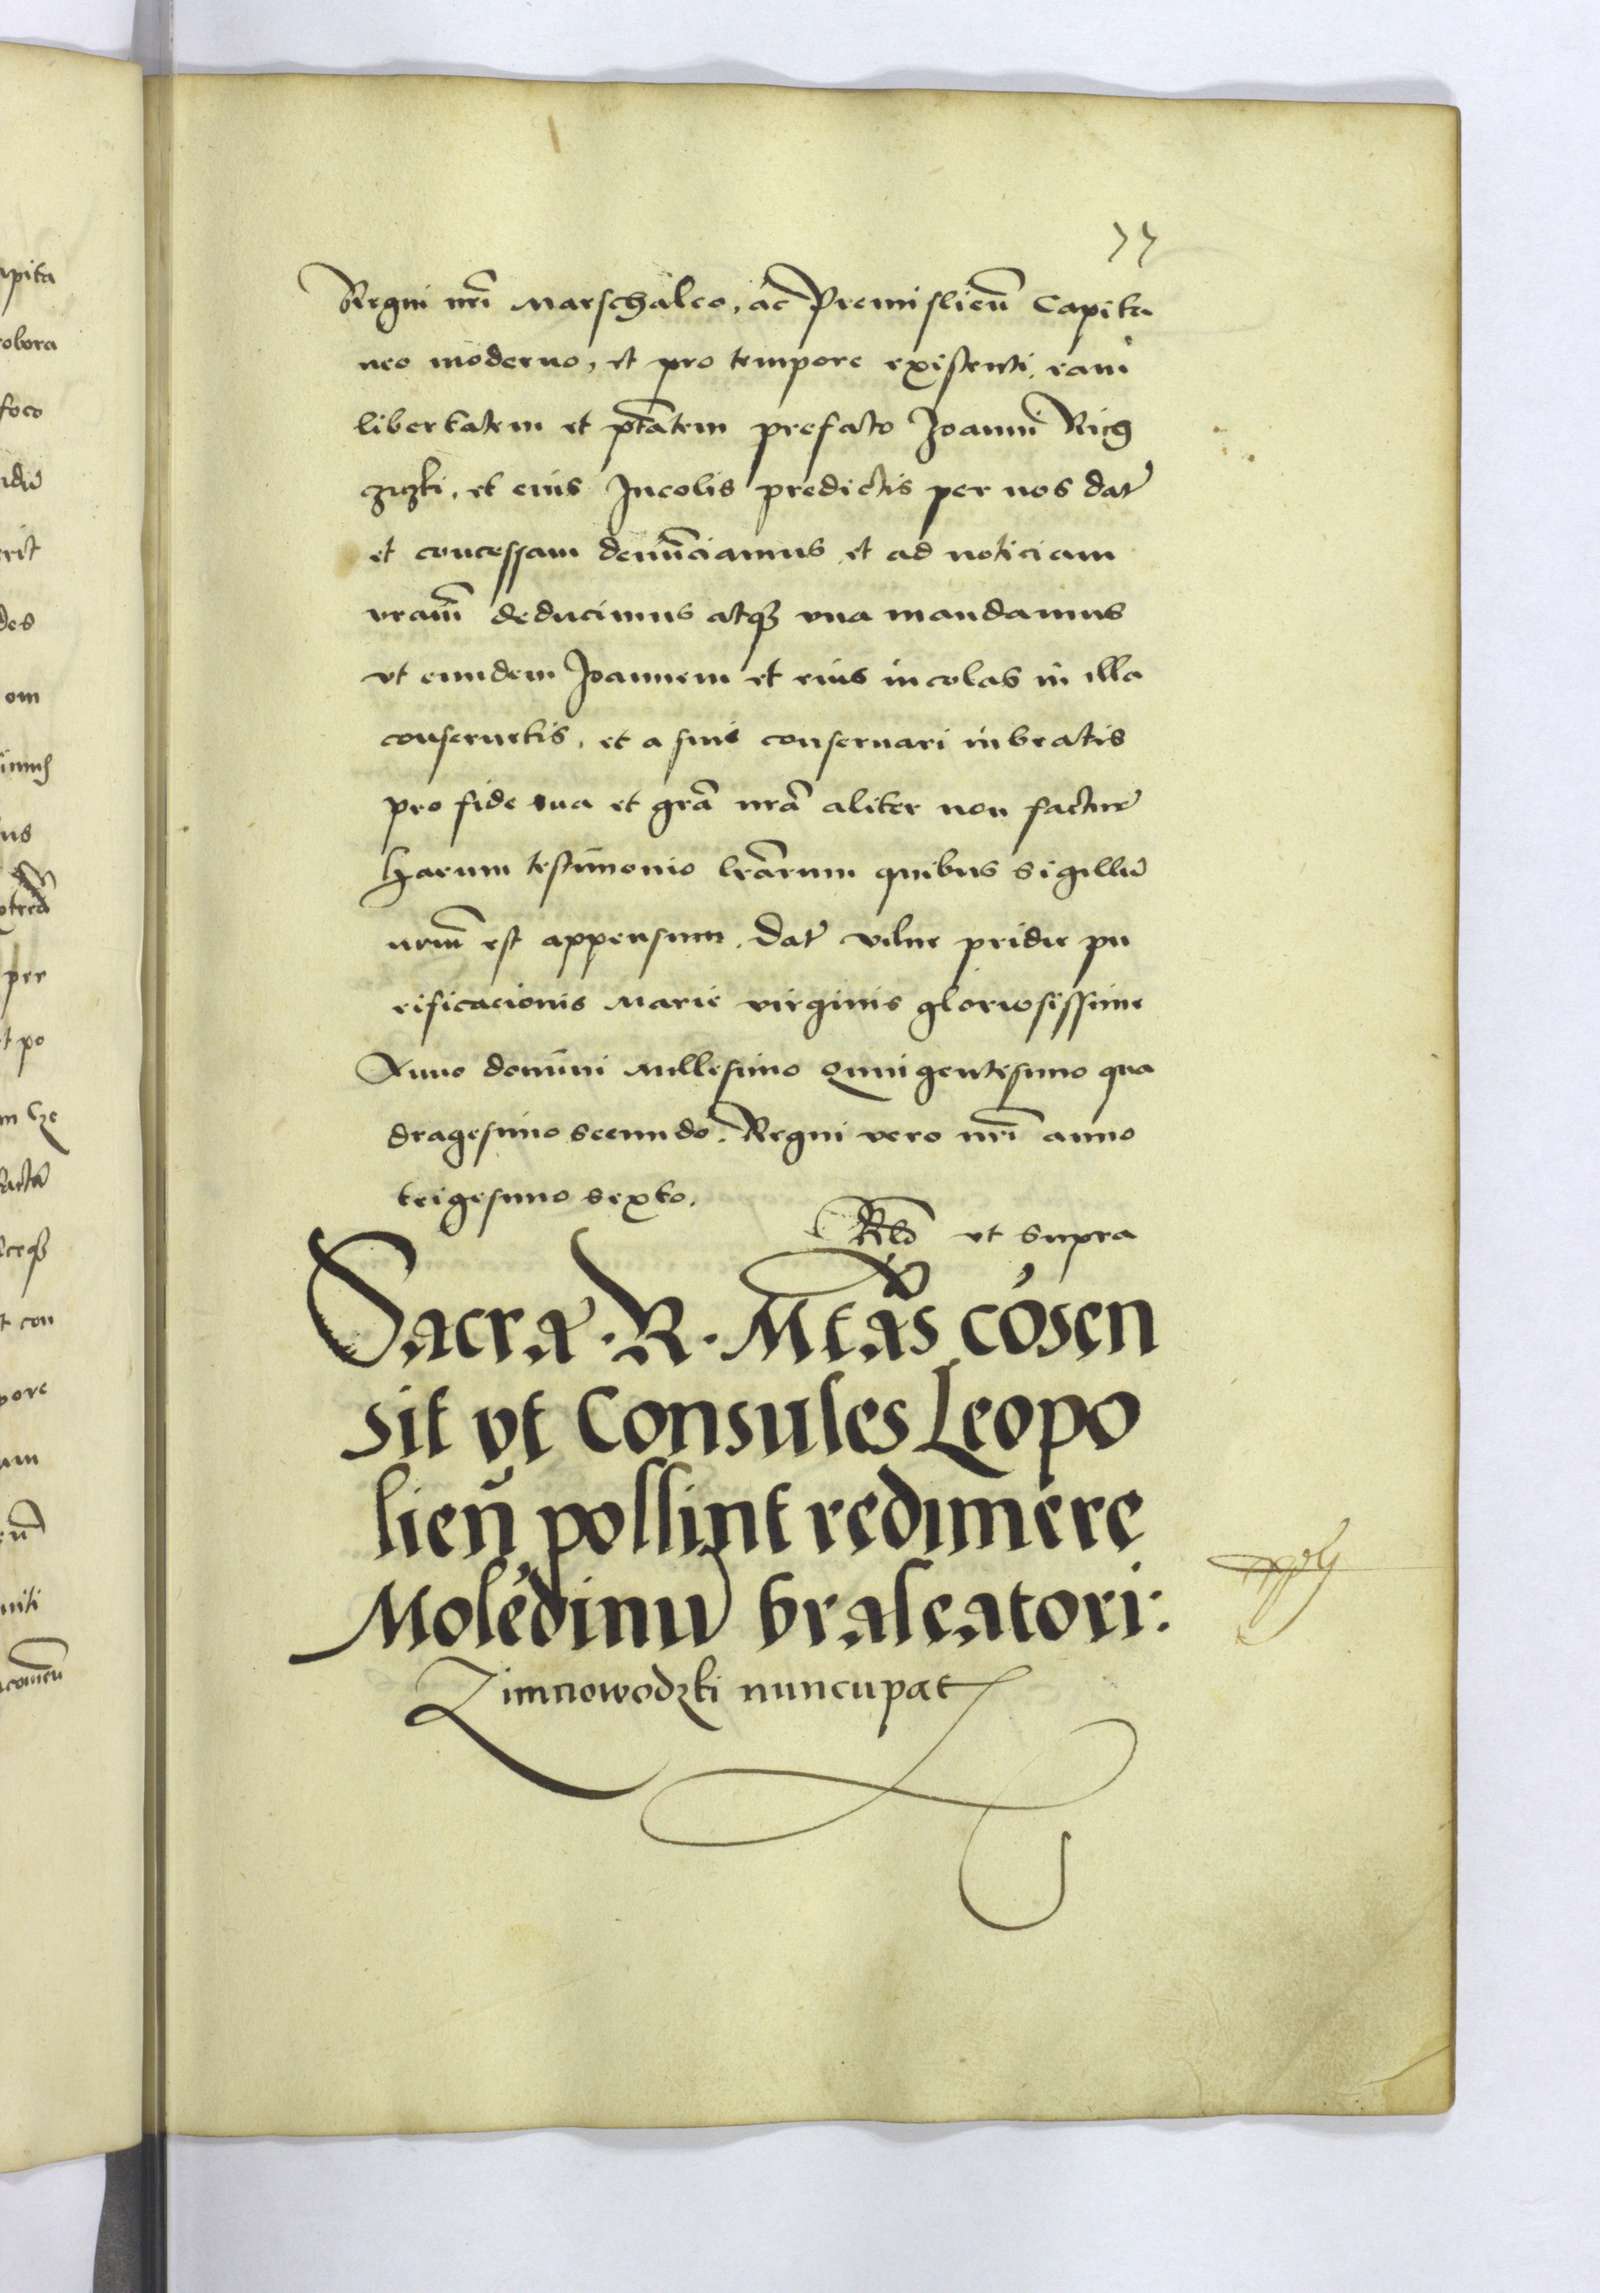 77
Regni nrĩ Marschalco, ac Premislieñ Capita
neo moderno, et pro tempore existenti, eam
libertatem et ptãtem prefato Joanni Rich
czιczki, et eius Incolis predictis per nos dat͛
et concessam denũciamus et ad noticiam
vram̃ deducimus atq₃ vna mandamus
vt eundem Joannem et eius incolas in illa
conseruetis, et a suis conseruari iubeatis
pro fide sua et grã nrã aliter non factur͛
Harum testimonio lrãrum quibus sigillũ
nrum̃ est appensum. Dat͛ vilne pridie pu
rificacionis Marie virginis gloriosissime
Anno domini Millesimo Quingentesimo qua
dragesimo secundo. Regni vero nrĩ anno
trigesimo sexto.
Rlõ vt supra
Sacra · R · Mtãs cõsen
sit vt Consules Leopo
lieñ possint redimere
Molẽdinũ braseatori:
Zimnowodzki nuncupat
apita
robora
foco
des
om
per
et po
pore